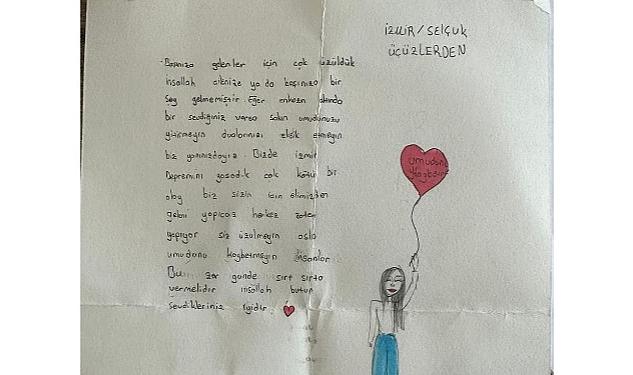 İZMİR/SELÇUK
ÜÇÜZLERDEN
Başınıza gelenler için çok üzüldük
inşallah ailenize ya da başınıza bir
şey gelmemiştir Eğer enkazın altında
bir sevdiğiniz varsa sakın umudunuzu
yitirmeyin dualarınızı eksik etmeyin
biz yanınızdayız. Bizde izmir
Depremini yaşadık çok kötü bir
olay biz sizin için elimizden
geleni yapıcaz herkez zaten
yapıyor siz üzülmeyin asla
umudunu kaybetmeyin insanlar
Bu zor günde sırt sırta
vermelidir inşallah butun
sevdikleriniz iyidir
umudunu
Kaybetme